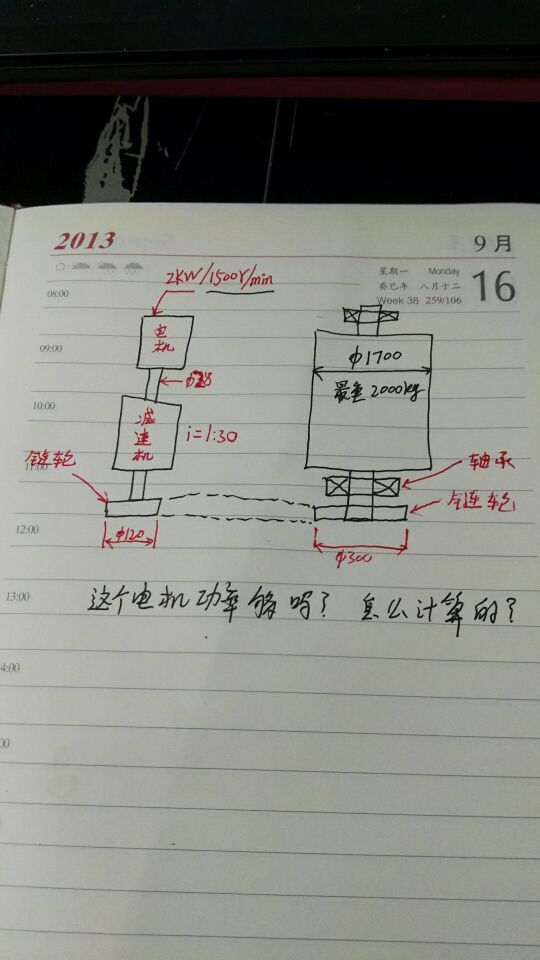 2013
9月
星期一 Monday
癸巳年 八月十二
Week 38 259/106
16
08:00
2KW/1500r/min
09:00
电机
φ1700
最重2000kg
10:00
减速机
i=1:30
11:00
链轮
轴承
链轮
12:00
φ120
φ300
13:00
这个电机功率够吗? 怎么计算的?
4:00
00